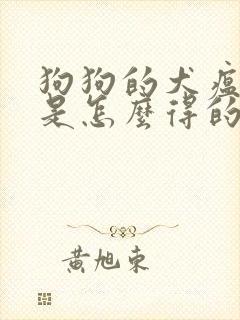 狗狗的犬瘟
是怎麼得的
黃旭東